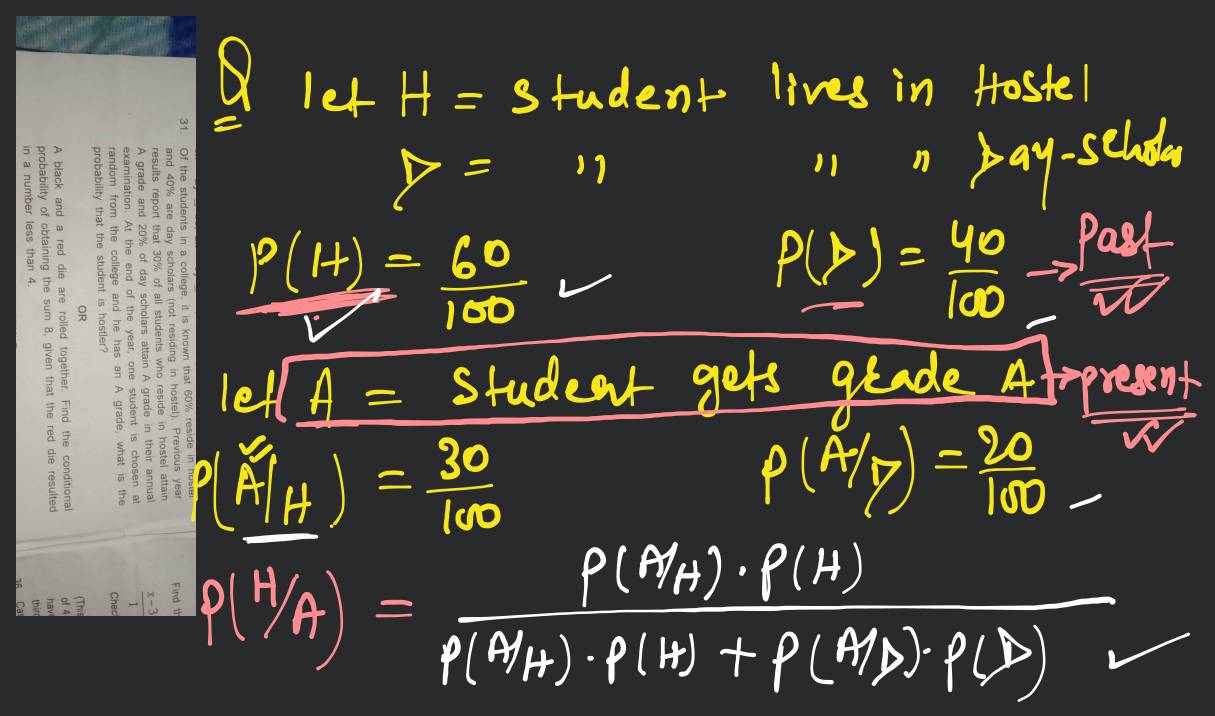 Q let H = student lives in Hostel
D = " " " Day-scholar
P(H) = 60/100 P(D) = 40/100 → Past
let A = student gets grade A → present
P(A/H) = 30/100 P(A/D) = 20/100
P(H/A) = P(A/H)·P(H) / P(A/H)·P(H) + P(A/D)·P(D)
31. Of the students in a college, it is known that 60% reside in hostel
and 40% are day scholars (not residing in hostel). Previous year
results report that 30% of all students who reside in hostel attain
A grade and 20% of day scholars attain A grade in their annual
examination. At the end of the year, one student is chosen at
random from the college and he has an A grade, what is the
probability that the student is hostler?
OR
A black and a red die are rolled together. Find the conditional
probability of obtaining the sum 8, given that the red die resulted
in a number less than 4.
Find th
x-3
1
Chec
(This
of 4
hav
third
36. Ca